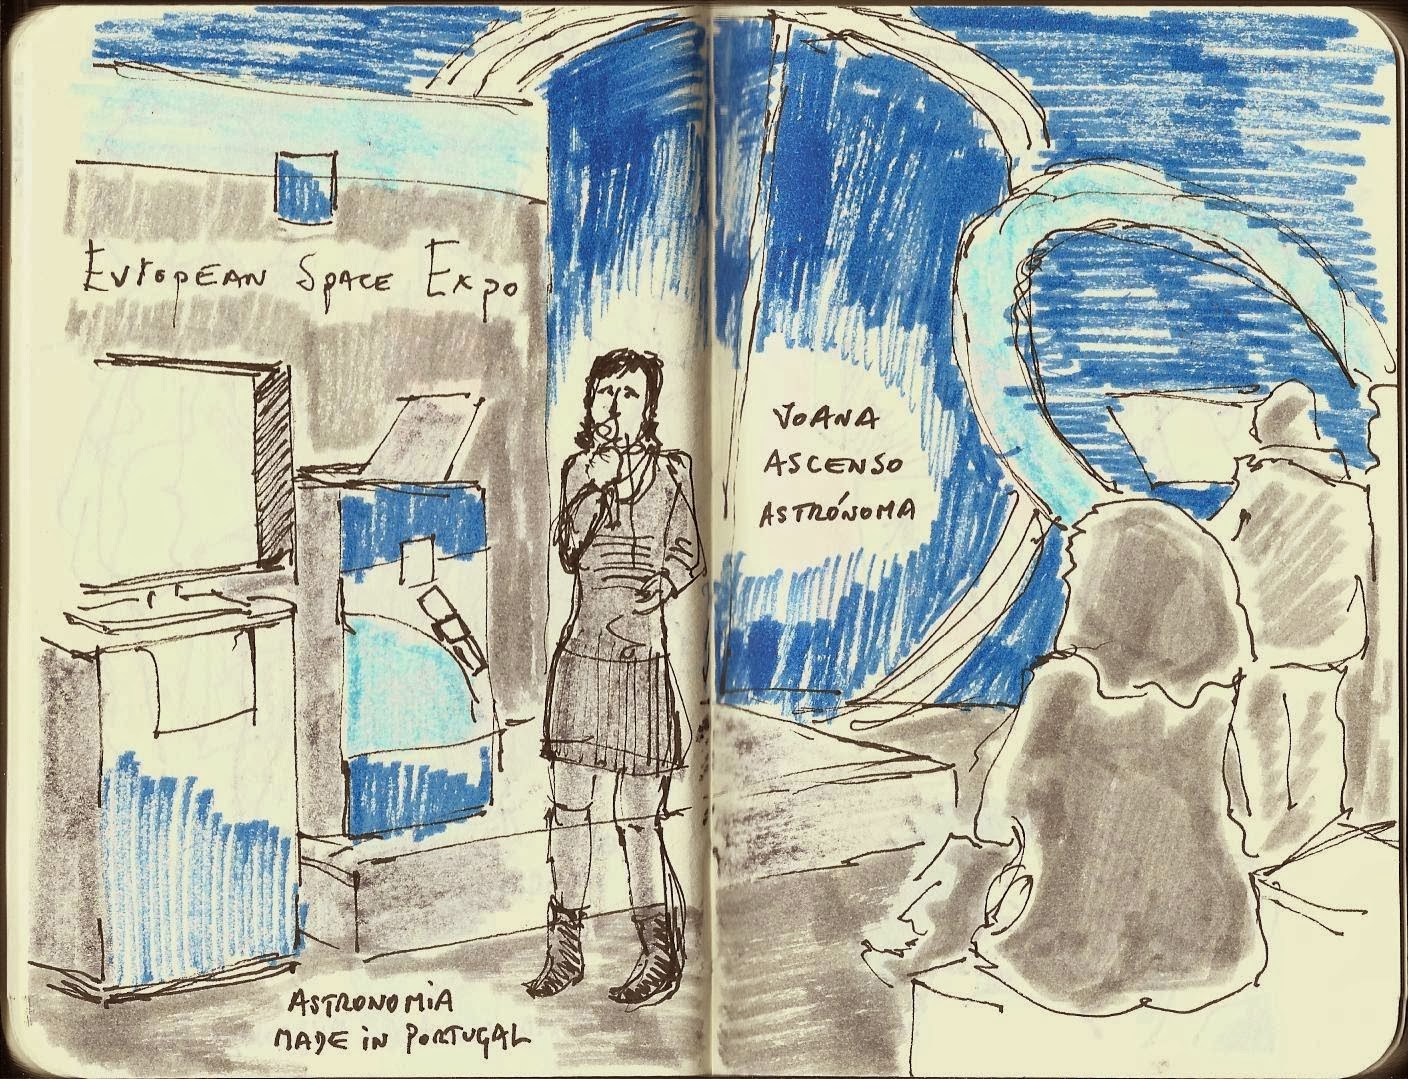 European Space Expo
JOANA
ASCENSO
ASTRÓNOMA
ASTRONOMiA
MADE iN PORTUGAL